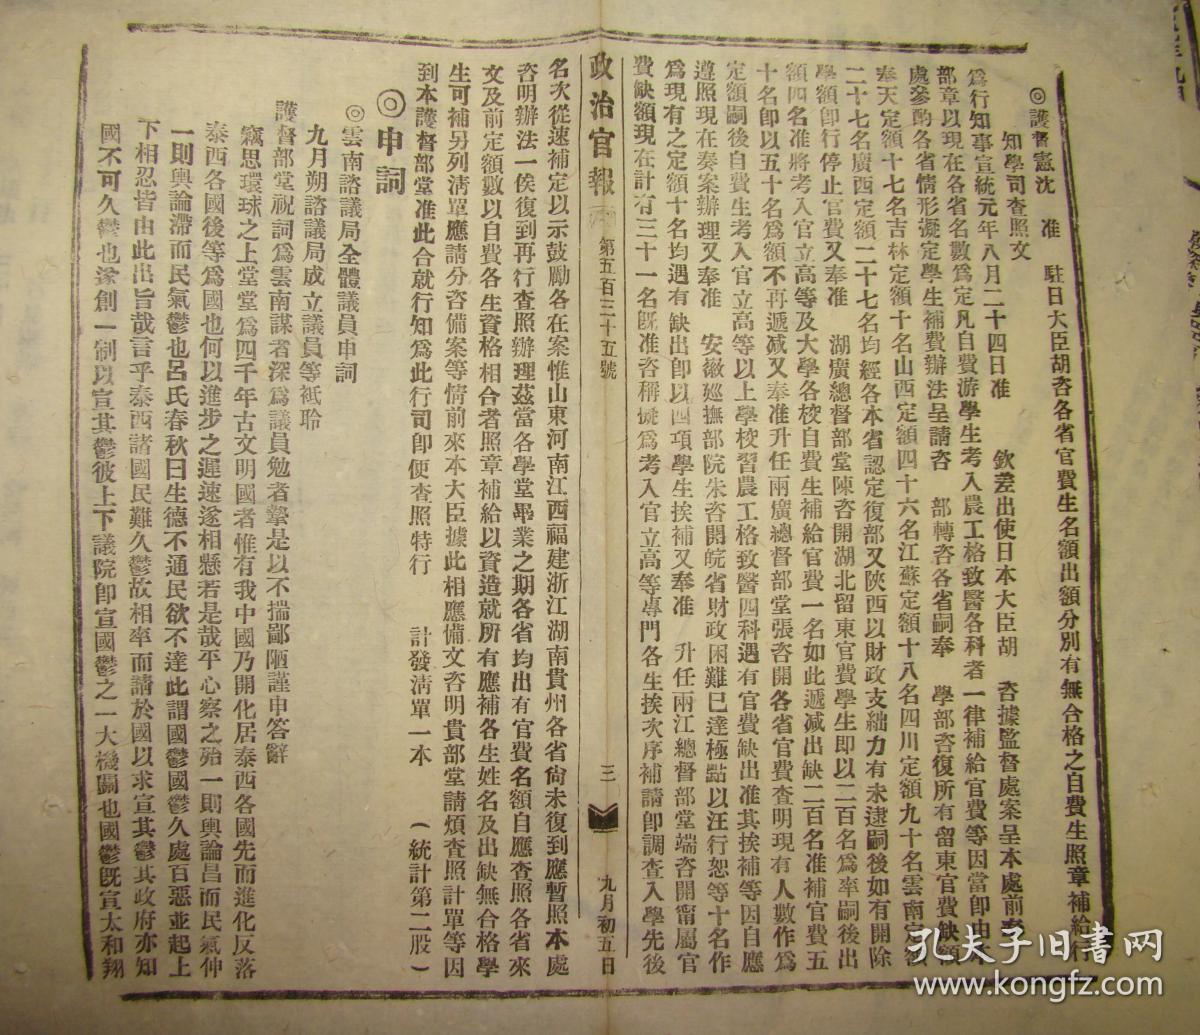 ◎護督憲沈　准　駐日大臣胡咨各省官費生名額出額分別有無合格之自費生照章補給行
知學司查照文
爲行知事宣統元年八月二十四日准　欽差出使日本大臣胡　咨據監督處案呈本處前奉
部章以現在各省名數爲定凡自費游學生考入農工格致醫各科者一律補給官費等因當卽由本
處參酌各省情形擬定學生補費辦法呈請咨　部轉咨各省嗣奉　學部咨復所有留東官費缺額
奉天定額十七名吉林定額十名山西定額四十六名江蘇定額十八名四川定額九十名雲南定額
二十七名廣西定額二十七名均經各本省認定復部又陝西以財政支絀力有未逮嗣後如有開除
學額卽行停止官費又奉准　湖廣總督部堂陳咨開湖北留東官費學生卽以二百名爲率嗣後出
額四名准將考入官立高等及大學各校自費生補給官費一名如此遞減出缺二百名准補官費五
十名卽以五十名爲額不再遞減又奉准升任兩廣總督部堂張咨開各省官費查明現有人數作爲
定額嗣後自費生考入官立高等以上學校習農工格致醫四科遇有官費缺出准其挨補等因自應
遵照現在奏案辦理又奉准　安徽廵撫部院朱咨開皖省財政困難已達極點以汪行恕等十名作
爲現有之定額十名均遇有缺出卽以四項學生挨補又奉准　升任兩江總督部堂端咨開甯屬官
費缺額現在計有三十一名旣准咨稱擬爲考入官立高等專門各生挨次序補請卽調查入學先後
政治官報　第五百三十五號　三　九月初五日
名次從速補定以示鼓勵各在案惟山東河南江西福建浙江湖南貴州各省尙未復到應暫照本處
咨明辦法一俟復到再行查照辦理茲當各學堂畢業之期各省均出有官費名額自應查照各省來
文及前定額數以自費各生資格相合者照章補給以資造就所有應補各生姓名及出缺無合格學
生可補另列淸單應請分咨備案等情前來本大臣據此相應備文咨明貴部堂請煩查照計單等因
到本護督部堂准此合就行知爲此行司卽便查照特行　計發淸單一本　（統計第二股）
◎申詞
◎雲南諮議局全體議員申詞
九月朔諮議局成立議員等祇聆
護督部堂祝詞爲雲南謀者深爲議員勉者摯是以不揣鄙陋謹申答辭
竊思環球之上堂堂爲四千年古文明國者惟有我中國乃開化居泰西各國先而進化反落
泰西各國後等爲國也何以進步之遲速遂相懸若是哉平心察之殆一則輿論昌而民氣伸
一則輿論滯而民氣鬱也呂氏春秋曰生德不通民欲不達此謂國鬱國鬱久處百惡並起上
下相忍皆由此出旨哉言乎泰西諸國民難久鬱故相率而請於國以求宣其鬱其政府亦知
國不可久鬱也遂創一制以宣其鬱彼上下議院卽宣國鬱之一大機關也國鬱旣宣太和翔
孔夫子旧书网
www.kongfz.com